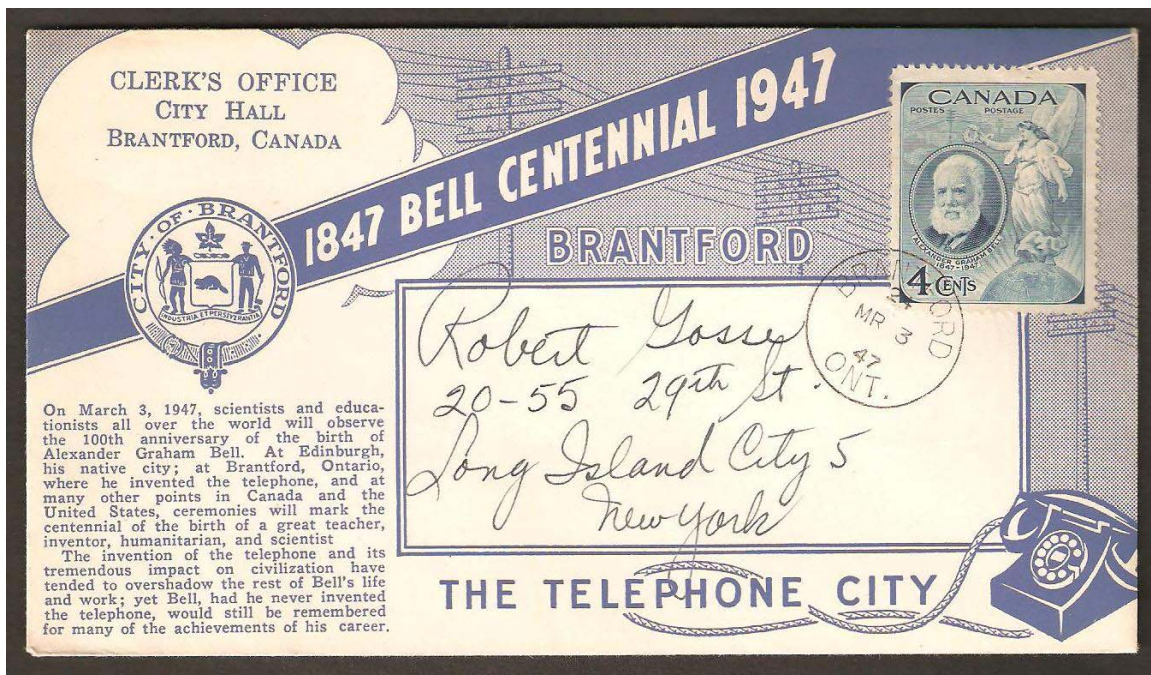 CLERK'S OFFICE
CITY HALL
BRANTFORD, CANADA
1847 BELL CENTENNIAL 1947
CANADA
POSTES POSTAGE
ALEXANDER GRAHAM BELL
1847-1947
4 CENTS
CITY·OF·BRANTFORD
INDUSTRIA ET PERSEVERANTIA
BRANTFORD
BRANTFORD
MR 3
47
ONT.
Robert Gosse
20-55 29th St.
Long Island City 5
New York
On March 3, 1947, scientists and educa-
tionists all over the world will observe
the 100th anniversary of the birth of
Alexander Graham Bell. At Edinburgh,
his native city; at Brantford, Ontario,
where he invented the telephone, and at
many other points in Canada and the
United States, ceremonies will mark the
centennial of the birth of a great teacher,
inventor, humanitarian, and scientist
The invention of the telephone and its
tremendous impact on civilization have
tended to overshadow the rest of Bell's life
and work; yet Bell, had he never invented
the telephone, would still be remembered
for many of the achievements of his career.
THE TELEPHONE CITY